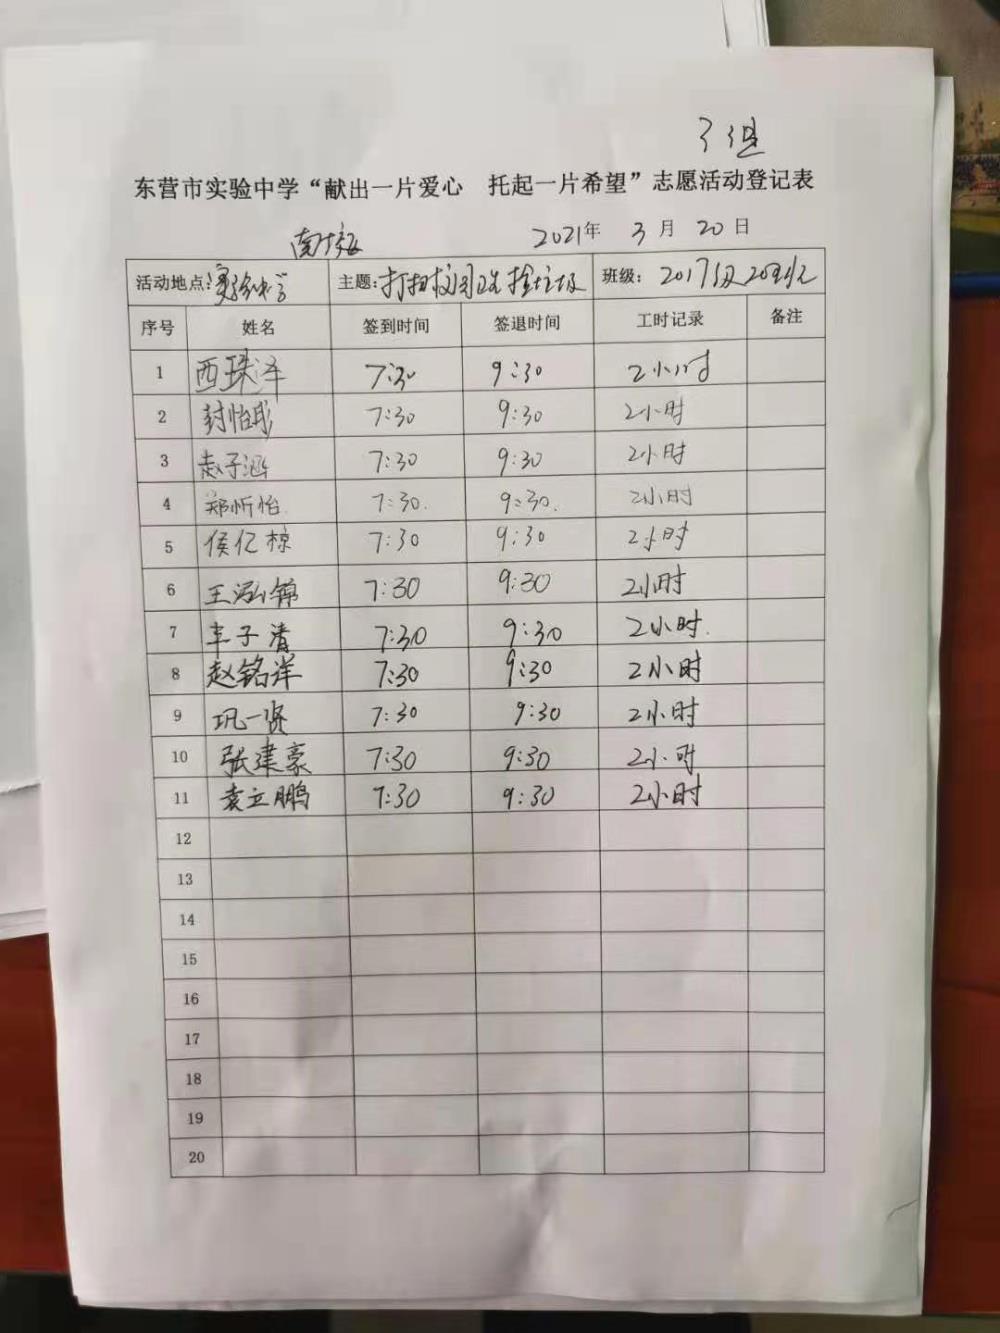 3组
东营市实验中学“献出一片爱心 托起一片希望”志愿活动登记表
南校 2021年 3月 20日
活动地点:实验中学 主题:打扫校园 捡垃圾 班级: 2017级20班
序号 姓名 签到时间 签退时间 工时记录 备注
1 西珠泽 7:30 9:30 2小时
2 封怡彤 7:30 9:30 2小时
3 赵子涵 7:30 9:30 2小时
4 郑忻怡 7:30. 9:30. 2小时
5 侯亿椋 7:30 9:30 2小时
6 王泓锦 7:30 9:30 2小时
7 丰子清 7:30 9:30 2小时.
8 赵铭洋 7:30 9:30 2小时
9 巩一贤 7:30 9:30 2小时
10 张建豪 7:30 9:30 2小时
11 袁立鹏 7:30 9:30 2小时
12
13
14
15
16
17
18
19
20